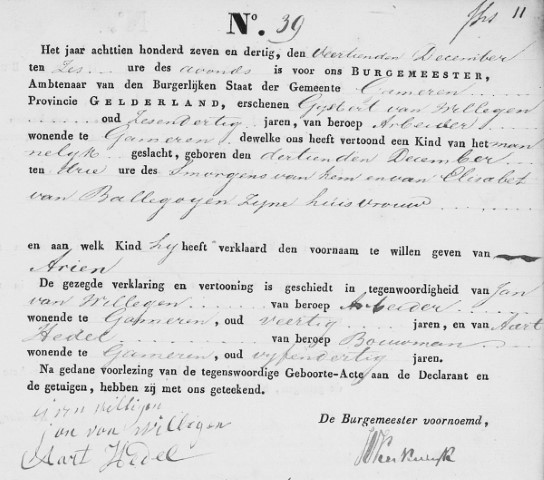 N.º 39
11
Het jaar achttien honderd zeven en dertig, den Veertienden December
ten Zes ure des avonds is voor ons BURGEMEESTER,
Ambtenaar van den Burgerlijken Staat der Gemeente Gameren
Provincie GELDERLAND, erschenen Gysbert van Willegen
oud Zesendertig jaren, van beroep Arbeider
wonende te Gameren, dewelke ons heeft vertoond een Kind van het man
nelyk geslacht, geboren den dertienden December
ten drie ure des Smorgens van hem en van Elisabet
van Ballegoyen Zyne huisvrouw
en aan welk Kind hy heeft verklaard den voornaam te willen geven van
Arien
De gezegde verklaring en vertooning is geschiedt in tegenwoordigheid van Jan
van Willegen van beroep Arbeider
wonende te Gameren, oud veertig jaren, en van Aart
Hedel van beroep Bouwman
wonende te Gameren, oud vyfendertig jaren.
Na gedane voorlezing van de tegenswoordige Geboorte-Acte aan de Declarant en
de getuigen, hebben zij met ons geteekend.
g van Willigen
jan van Willegen
Aart Hedel
De Burgemeester voornoemd,